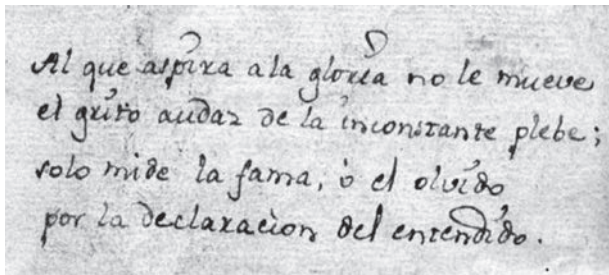 Al que aspira a la gloria no le mueve
el grito audaz de la inconstante plebe;
solo mide la fama, ò el olvido
por la declaraciòn del entendido.